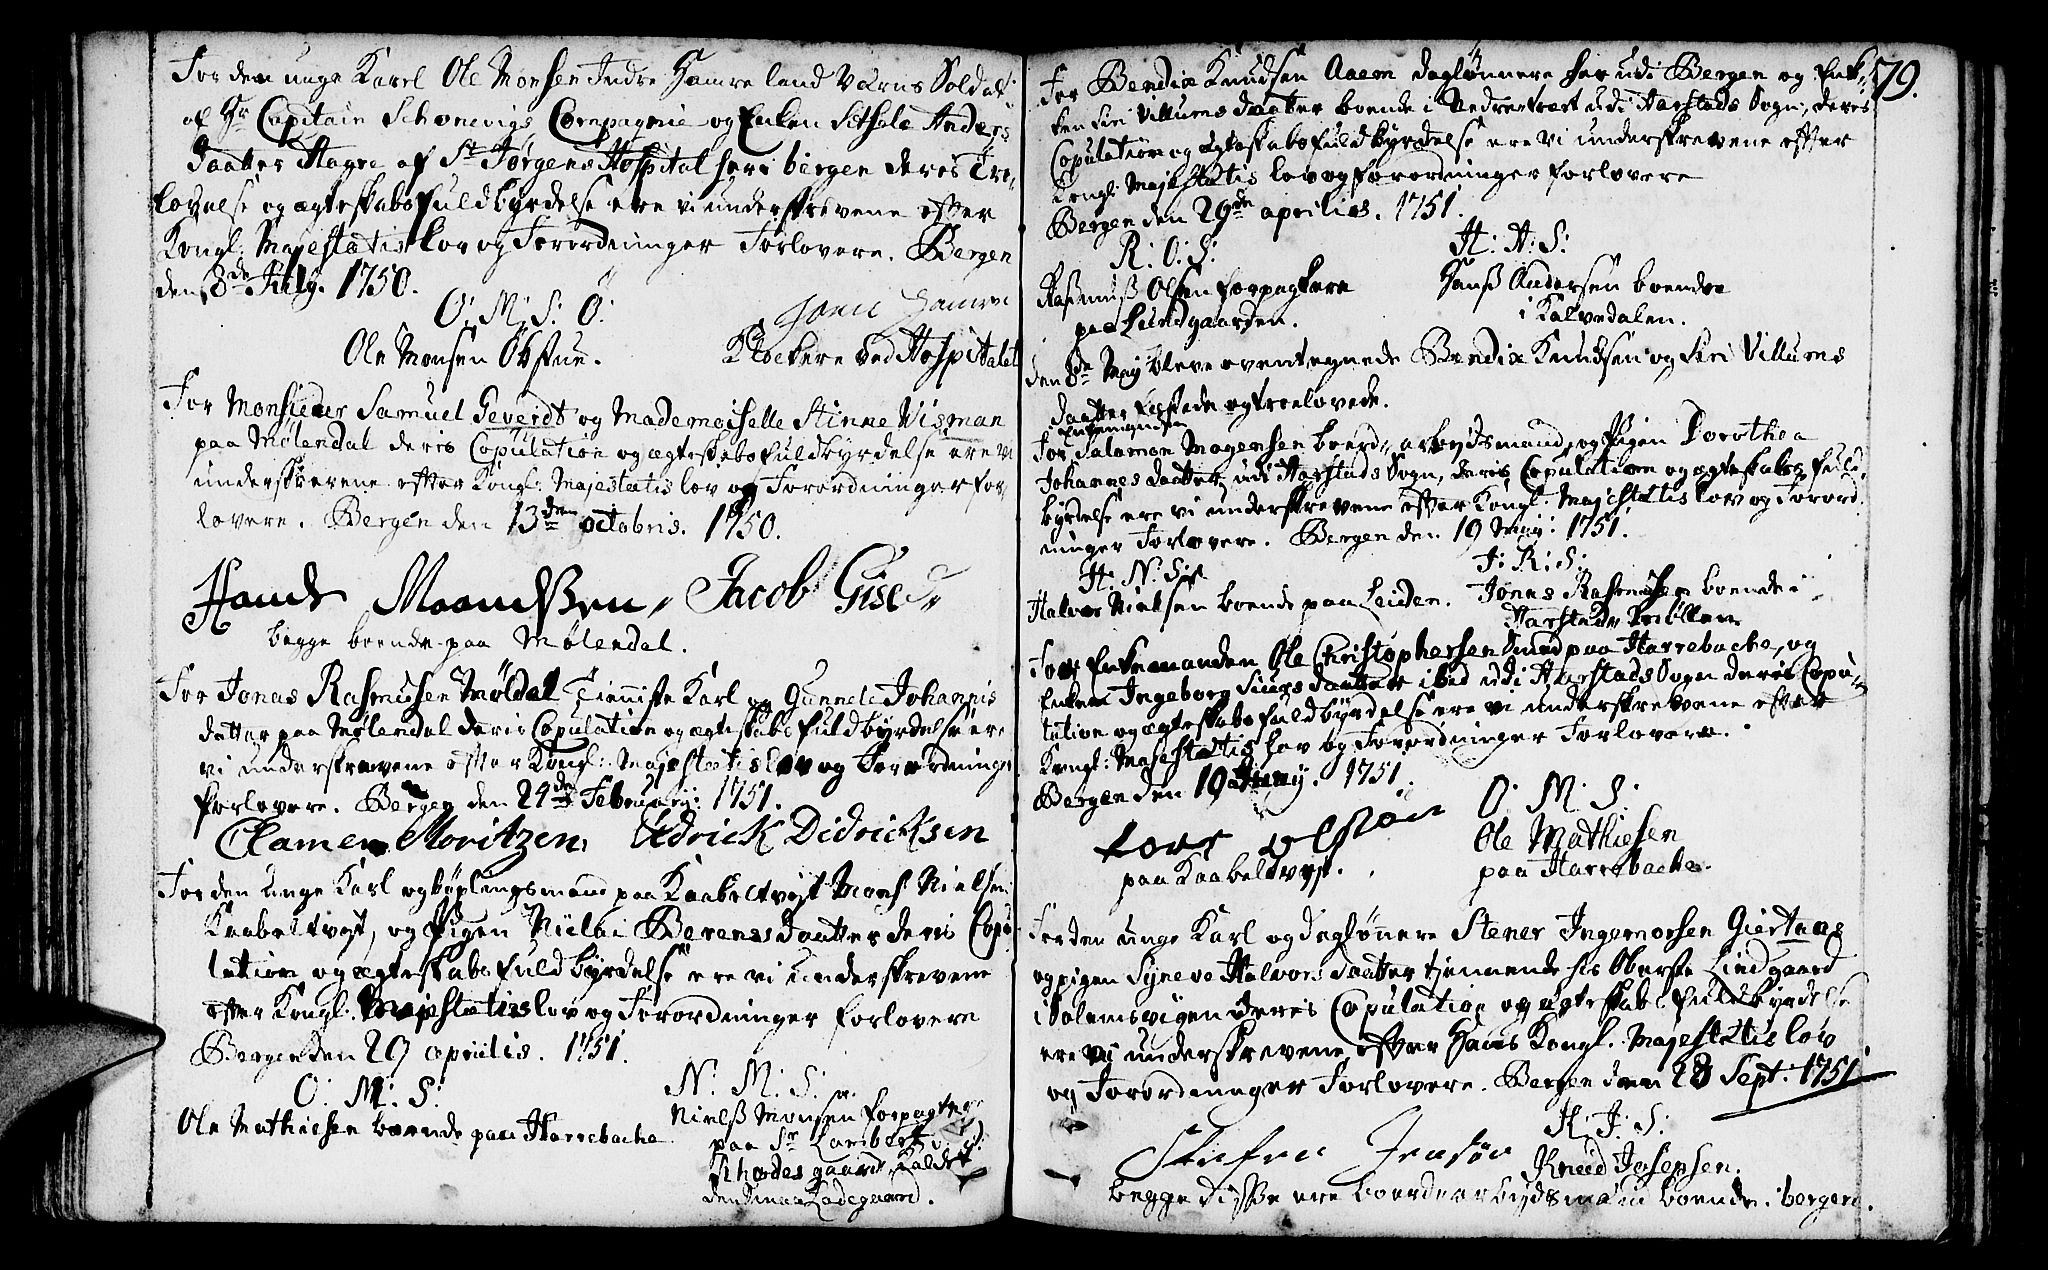 For den unge Karl Ole Monsen Indre Hamre land Værns Soldat
af Hr Capitain Schonevigs Compagnie og Enken Sitzele Anders
daatter Hagre af St Jørgens Hospital her i bergen deres Troe
lovelse og ægteskabs fuldbyrdelse ere vi underskrevene efter
Kongl: Majestætis lov og Forordninger Forlovere. Bergen
den 8de July. 1750.
O: M: S: Ø:
Ole Monsen Øbstue.
Hamre
Klockere ved Hospitalet
For Monsieur Samuel Geverdt og Mademoiselle Stinne Visman
paa Mølendal deris Copulation og ægteskabs fuldbyrdelse ere vi
underskrevene efter Kongl: Majestætis lov og Forordninger for
lovere. Bergen den 13den octobris. 1750.
Hands Maandsen, Jacob Giset
begge boende paa Mølendal.
For Jonas Rasmusen Møldal Tienniste Karl og Gunnele Johannis
datter paa Mølendal deris Copulation og ægteskabs fuldbyrdelse ere
vi underskrevene efter Kongl: Majestætis lov og Forordninger
forlovere. Bergen den 24de February: 1751.
Clamen Moritzen, Didrick Didricksen
For den unge Karl og bøxlingsmand paa Kaabeltvejt Mons Nielsen
Kaabeltvejt, og Pigen Berens daatter deris Copu
lation og ægteskabs fuldbyrdelse ere vi underskrevene
efter Kongl: Majestætis lov og Forordninger forlovere
Bergen den 29 aprilis. 1751.
O: M: S:
Ole Mathiesen boende paa Harrebache
N: M: S:
Niels Monsen forpagter
paa Sr Lambert
Rhodes gaard kaldet
Ladegaard.
79.
For Bendix Knudsen Aaem dagløunere her udi Bergen og Enk-
ken Siri Villums daatter boende i Nedretvet udi Harstads Sogn, deres
Copulation og ægteskabs fuldbyrdelse ere vi underskrevene efter
Kongl: Majestætis lov og forordninger forlovere
Bergen den 29de aprilis. 1751.
R: O: S:
Rasmus Olsen forpagtere
paa Lundgaarden.
H: A: S:
Hans Andersen boende
i Kalvedalen.
den 8de Maij bleve oventegnede Bendix Knudsen og Siri Villums
daatter fæstede og troelovede.
Enkemanden
For Salamon Magensen boerd-arbeydsmand, og Pigen Dorothea
Johannes daatter udi Harstads Sogn, deres Copulation og ægteskabs fuld
byrdelse ere vi underskrevene efter Kongl: Majestætis lov og Forord
ninger Forlovere. Bergen den 19 Maij: 1751.
H: N: S:
Halvor Nielsen boende paa Leiden.
J: R: S:
Jonas Rasmusen boende i
Harstads Møllen
For Enkemanden Ole Christophersen Smed paa Harrebache, og
Enken Ingeborg Siurs daatter ibid udi Harstads Sogn deres Copu
lation og ægteskabs fuldbyrdelse ere vi underskrevene efter
Kongl: Majestætis lov og Forordninger Forlovere.
Bergen den 19 Juny. 1751.
paa Kaabeltvejt.
O: M: S:
Ole Mathiesen
paa Harrebache.
For den unge Karl og dagløunere Stener Ingemorsen Giertnæs
og pigen Syneve Halvors daatter tjennende hos Oberste Lindgaard
i Solemsvigen deres Copulation og ægteskabs fuldbyrdelse
ere vi underskrevene efter Hans Kongl: Majestætis lov
og Forordninger Forlovere. Bergen den 28 Sept: 1751
Stefen Jensøn
K: J: S:
Knud Josepsen.
begge disse ere boerdearbeydsmænd boende i bergen.